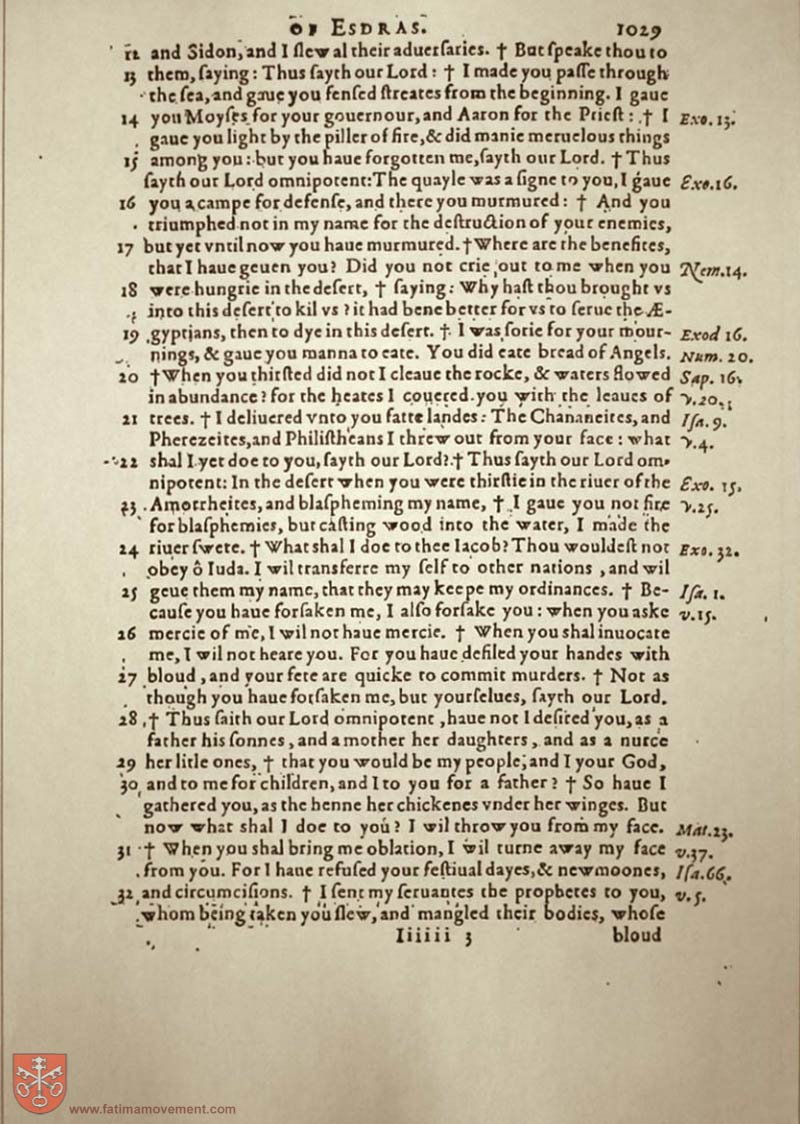 OF ESDRAS. 1029
12 and Sidon, and I ſlew al their aduerſaries. † But ſpeake thou to
13 them, ſaying: Thus ſayth our Lord: † I made you paſſe through
the ſea, and gaue you fenſed ſtreates from the beginning. I gaue
14 you Moyſes for your gouernour, and Aaron for the Prieſt: † I Exo. 13.
gaue you light by the piller of fire, & did manie meruelous things
15 among you: but you haue forgotten me, ſayth our Lord. † Thus
ſayth our Lord omnipotent: The quayle was a ſigne to you, I gaue Exo. 16.
16 you a campe for defenſe, and there you murmured: † And you
triumphed not in my name for the deſtruction of your enemies,
17 but yet vntil now you haue murmured. † Where are the benefites,
that I haue geuen you? Did you not crie out to me when you Nem. 14.
18 were hungrie in the deſert, † ſaying: Why haſt thou brought vs
into this deſert to kil vs? it had bene better for vs to ſerue the Æ-
19 gyptians, then to dye in this deſert. † I was ſorie for your mour- Exod 16.
nings, & gaue you manna to eate. You did eate bread of Angels. Num. 20.
20 † When you thirſted did not I cleaue the rocke, & waters flowed Sap. 16.
in abundance? for the heates I couered you with the leaues of v. 20.
21 trees. † I deliuered vnto you fatte landes: The Chananeites, and Iſa. 9.
Pherezeites, and Philiſtheans I threw out from your face: what v. 4.
22 shal I yet doe to you, ſayth our Lord? † Thus ſayth our Lord om-
nipotent: In the deſert when you were thirſtie in the riuer of the Exo. 15.
23 Amorrheites, and blaſpheming my name, † I gaue you not fire v. 25.
for blaſphemies, but caſting wood into the water, I made the
24 riuer ſwete. † What shal I doe to thee Iacob? Thou wouldeſt not Exo. 32.
obey ô Iuda. I wil transferre my ſelf to other nations, and wil
25 geue them my name, that they may keepe my ordinances. † Be- Iſa. 1.
cauſe you haue forſaken me, I alſo forſake you: when you aske v. 15.
26 mercie of me, I wil not haue mercie. † When you shal inuocate
me, I wil not heare you. For you haue defiled your handes with
27 bloud, and your fete are quicke to commit murders. † Not as
though you haue forſaken me, but yourſelues, ſayth our Lord.
28 † Thus ſaith our Lord omnipotent, haue not I deſired you, as a
father his ſonnes, and a mother her daughters, and as a nurce
29 her litle ones, † that you would be my people, and I your God,
30 and to me for children, and I to you for a father? † So haue I
gathered you, as the henne her chickenes vnder her winges. But
now what shal I doe to you? I wil throw you from my face. Mat. 23.
31 † When you shal bring me oblation, I wil turne away my face v. 37.
from you. For I haue refuſed your feſtiual dayes, & newmoones, Iſa. 66.
32 and circumciſions. † I ſent my ſeruantes the prophetes to you, v. 5.
whom being taken you ſlew, and mangled their bodies, whoſe
Iiiiii 3 bloud
www.fatimamovement.com